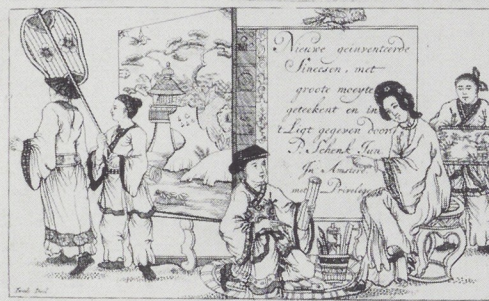 Nieuwe geinventeerde
Sineesen, met
groote moeyte
geteekent en in
't Ligt gegeven door
P. Schenk Jun.
In Amsterd.
met Privilege